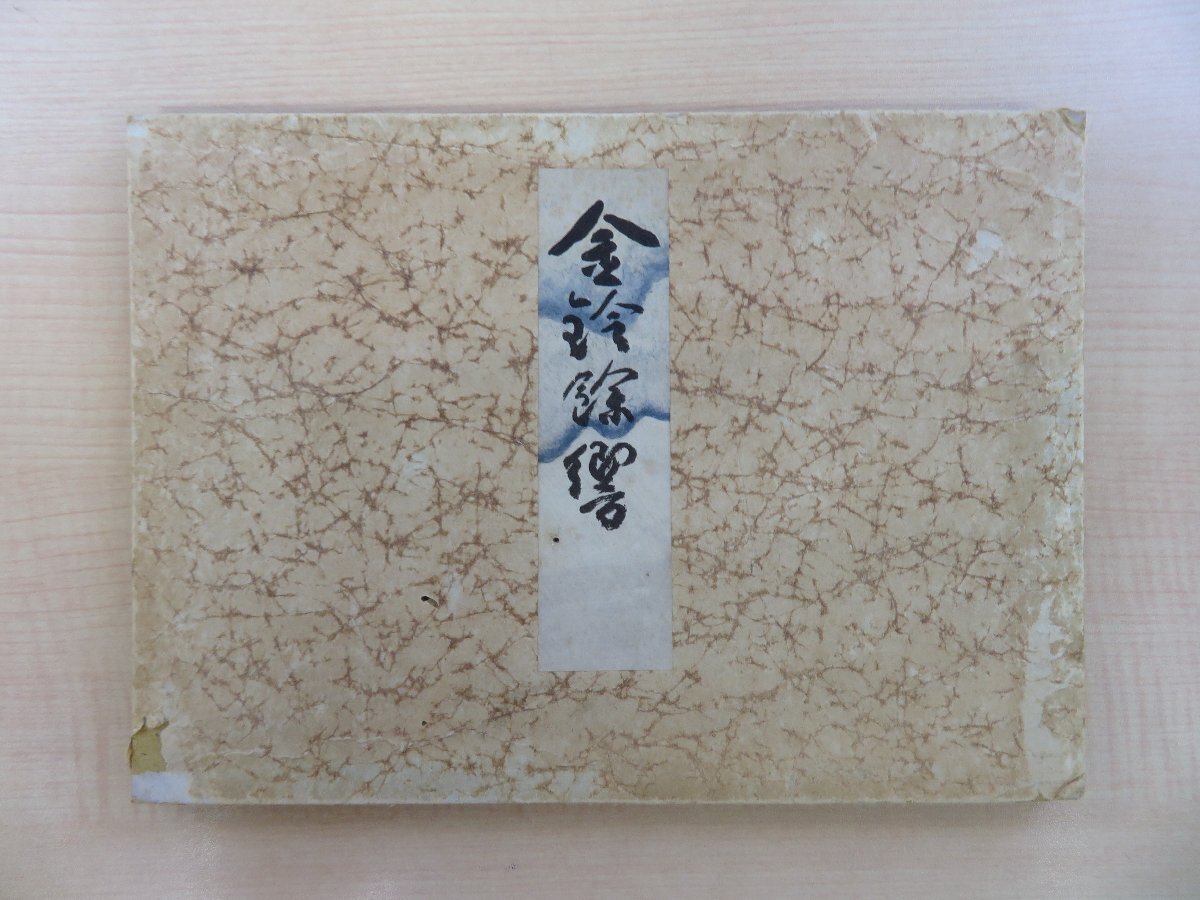 金鈴餘響